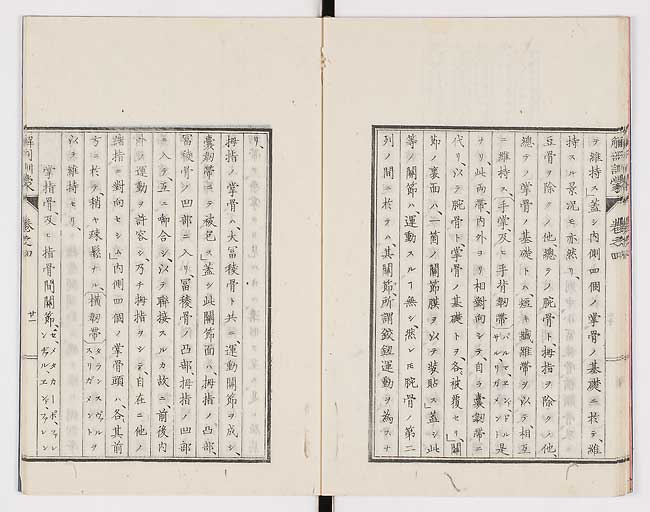 テ維持ス」蓋シ内側四個ノ掌骨ノ基礎ニ於テ、維
持スル景況モ亦然リ、
豆骨ヲ除クノ他、總テノ腕骨ト、拇指ヲ除クノ他、
總テノ掌骨ノ基礎トハ、短キ纎維帶ヲ以テ、相互
ニ維持ス、手掌及ヒ手背韌帶
ナリ、此兩帶、内外ヨリ相對向シテ、自ラ囊韌帶ニ
代リ、以テ腕骨ト、掌骨ノ基礎トヲ、各被覆セリ」關
節ノ裏面ハ、一箇ノ關節膜ヲ以テ裝貼ス」蓋シ此
等ノ關節ハ、運動スルヿ無シ、然レモ腕骨ノ第二
列ノ間ニ於テハ、其關節、所謂鉸鈕運動ヲ爲スナ
解剖訓蒙
卷之四
リ、
拇指ノ掌骨ハ、大冨稜骨ト共ニ、運動關節ヲ成シ、
囊韌帶ニテ被包ス」蓋シ此關節面ハ、拇指ノ凸部、
冨稜骨ノ凹部ニ入リ、冨稜骨ノ凸部、拇指ノ凹部
ニ入テ、互ニ嚙合シ、以テ聯接スルカ故ニ、前後内
外ノ運動ヲ許容シ、乃チ拇指ヲシテ、自在ニ他ノ
諸指ニ對向セシム」内側四個ノ掌骨頭ハ、各其前
方ニ於テ、稍ヤ疎鬆ナル、横韌帶
以テ維持セリ、
掌指骨、及ヒ指骨間關節、
解剖訓蒙
卷之四
廿一